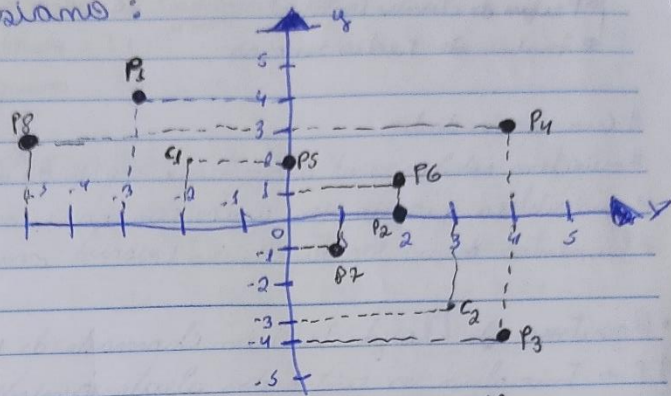 siano:
y
5
P1
4
P8
3
P4
C1
2
P5
P6
1
-5 -4 -3 -2 -1
0
P2
1 2 3 4 5
-1
P7
-2
-3
C2
-4
P3
-5